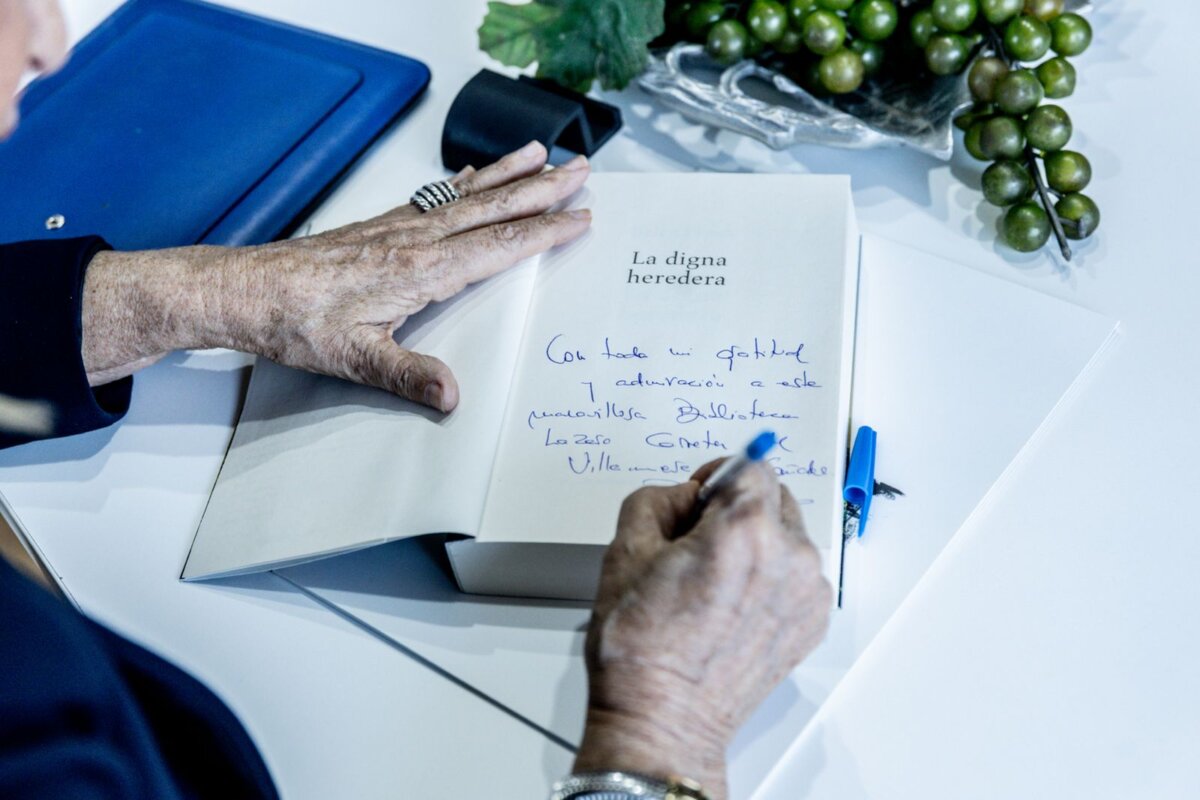 La digna
heredera
Con toda mi gratitud
y admiración a este
maravillosa Biblioteca
Lazaro Carreter
Villanueva